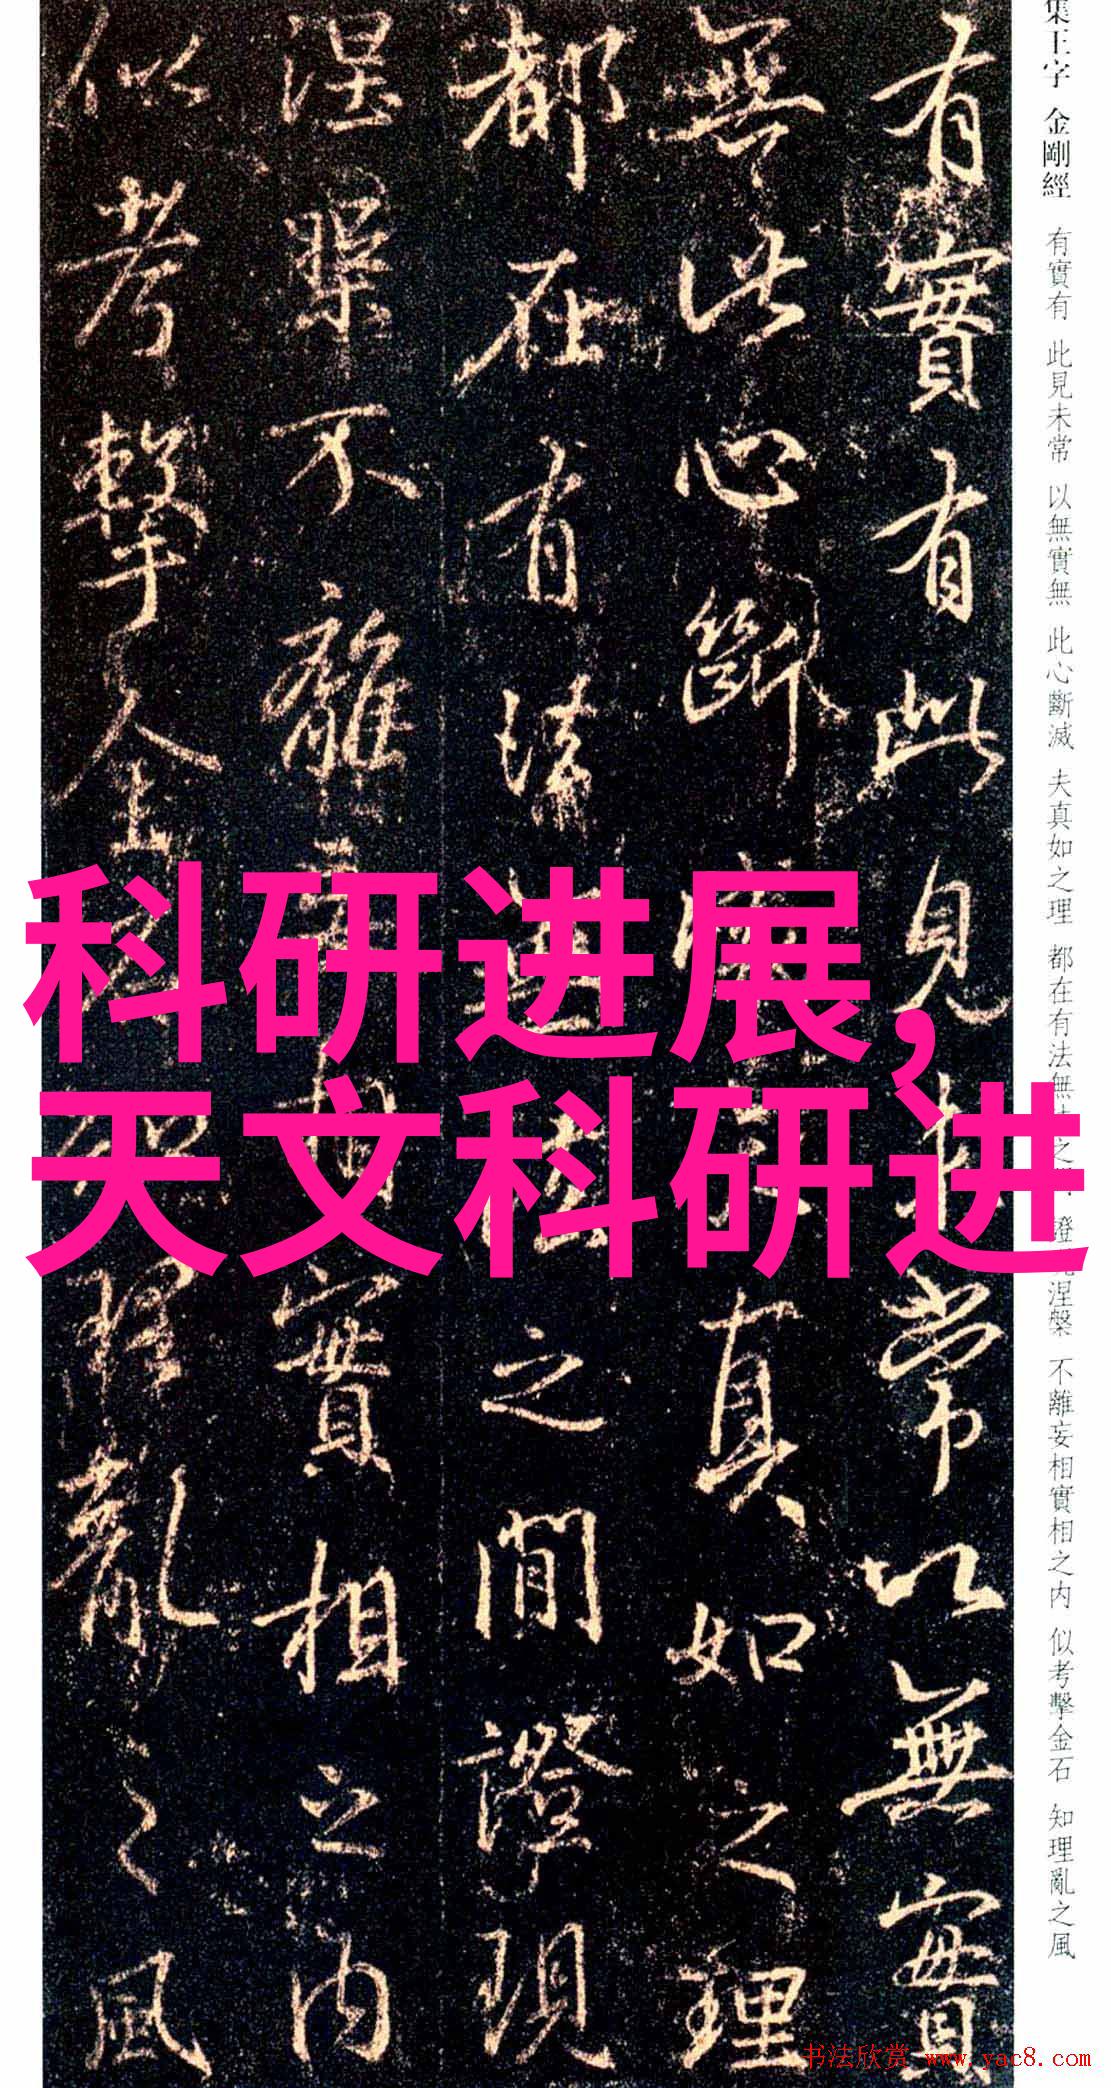 集王字 金剛經 有實有 此見未常 以無實無 此心斷滅 夫真如之理 都在有法無 之 證 涅槃 不離妄相實相之内 似考擊金石 知理亂之風
有實有此見未常以無實
無此心斷滅夫真如之理
都在有法無法之間證現
涅槃不離妄相實相之内
似考擊金石知理亂之風
科研进展,
天文科研进
书法欣赏 www.yac8.com